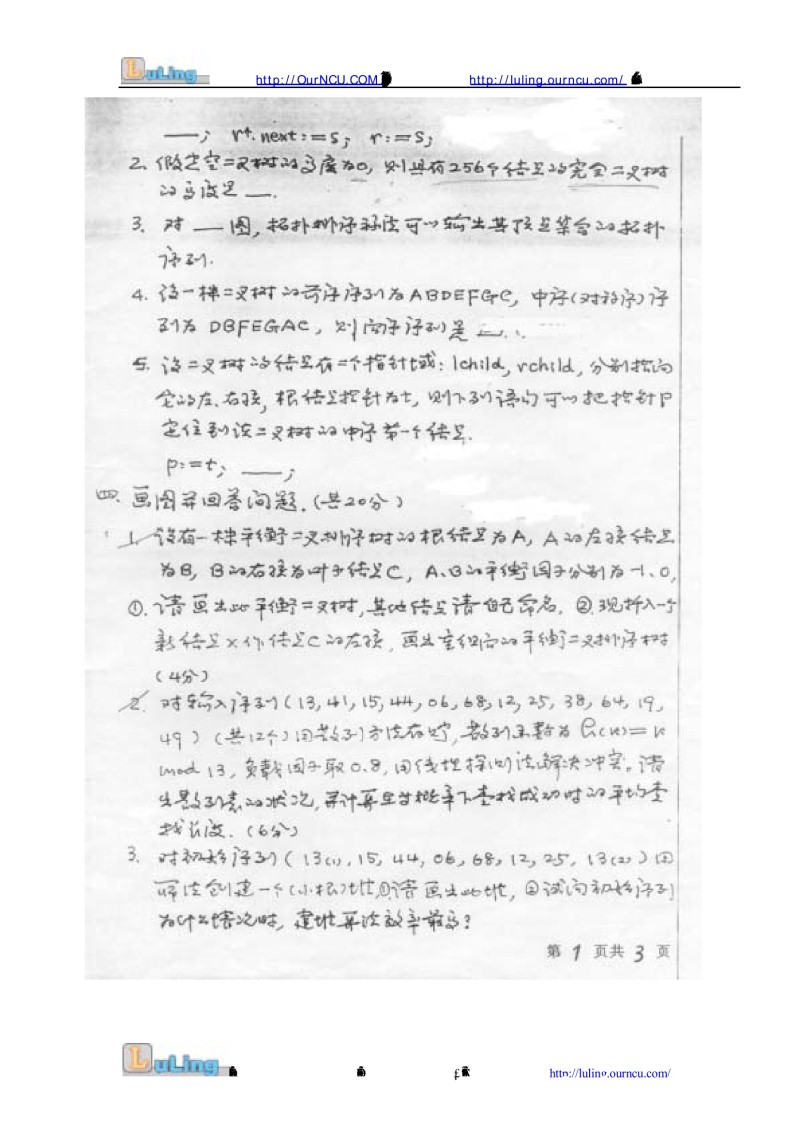 LuLing http://OurNCU.COM http://luling.ourncu.com/
——; r↑.next:=s; r:=s;
2. 假定空二叉树的高度为0, 则具有256个结点的完全二叉树
的高度是 ——.
3. 对 —— 图, 拓扑排序算法可以输出其顶点集合的拓扑
序列.
4. 设一棵二叉树的前序序列为ABDEFGC, 中序(对称序)序
列为 DBFEGAC, 则后序序列是 ——.
5. 设二叉树的结点有二个指针域: lchild, rchild, 分别指向
它的左、右孩, 根结点指针为t, 则下列语句可以把指针p
定位到该二叉树的中序第一个结点.
p:=t; ——;
四. 画图并回答问题. (共20分)
1. 设有一棵平衡二叉排序树的根结点为A, A的左孩结点
为B, B的右孩为叶子结点C, A、B的平衡因子分别为-1、0,
①. 请画出此平衡二叉树, 其他结点请自己命名. ②. 现插入一个
新结点x作结点C的左孩, 画出重组后的平衡二叉排序树
(4分)
2. 对输入序列(13, 41, 15, 44, 06, 68, 12, 25, 38, 64, 19,
49)(共12个)用散列方法存贮, 散列函数为 h(k)=k
mod 13, 负载因子取0.8, 用线性探测法解决冲突。请
出散列表的状况, 并计算在等概率下查找成功时的平均查
找长度. (6分)
3. 对初始序列(13(1), 15, 44, 06, 68, 12, 25, 13(2))用
算法创建一个(小根)堆, ①请画出此堆, ②试问初始序列
为什么情况时, 建堆算法效率最高?
第 1 页共 3 页
LuLing £ http://luling.ourncu.com/